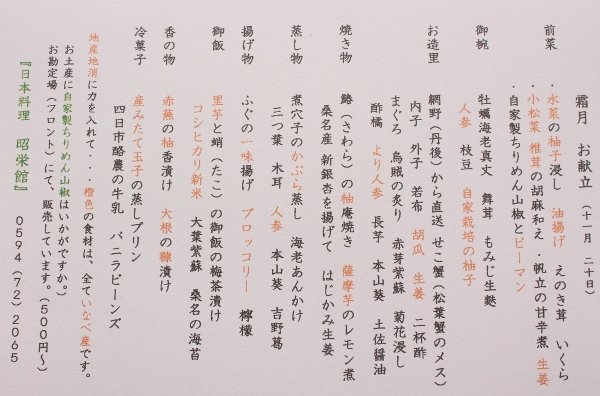 霜月 お献立 (十一月 二十日)
前菜 ・水菜の柚子浸し 油揚げ えのき茸 いくら
・小松菜 椎茸の胡麻和え ・帆立の甘辛煮 生姜
・自家製ちりめん山椒とピーマン
御椀 牡蠣海老真丈 舞茸 もみじ生麩
人参 枝豆 自家栽培の柚子
お造里 網野(丹後)から直送 せこ蟹(松葉蟹のメス)
内子 外子 若布 胡瓜 生姜 二杯酢
まぐろ 烏賊の炙り 赤芽紫蘇 菊花浸し
酢橘 より人参 長芋 本山葵 土佐醤油
焼き物 鰆(さわら)の柚庵焼き 薩摩芋のレモン煮
桑名産 新銀杏を揚げて はじかみ生姜
蒸し物 煮穴子のかぶら蒸し 海老あんかけ
三つ葉 木耳 人参 本山葵 吉野葛
揚げ物 ふぐの一味揚げ ブロッコリー 檸檬
御飯 里芋と蛸(たこ)の御飯の梅茶漬け
コシヒカリ新米 大葉紫蘇 桑名の海苔
香の物 赤蕪の柚香漬け 大根の糠漬け
冷菓子 産みたて玉子の蒸しプリン
四日市酪農の牛乳 バニラビーンズ
地産地消に力を入れて・・・橙色の食材は、全ていなべ産です。
お土産に自家製ちりめん山椒はいかがですか。
お勘定場(フロント)にて、販売しています。(500円〜)
『日本料理 昭栄館』 0594(72)2065